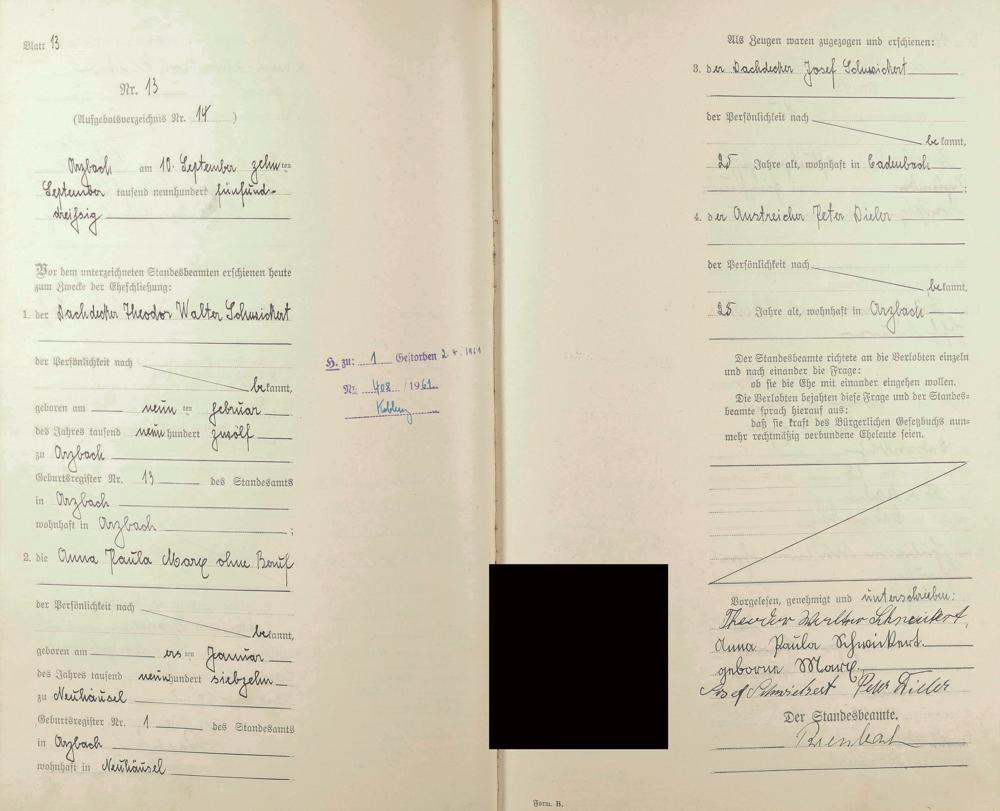 Blatt 13
Nr. 13
(Aufgebotsverzeichnis Nr. 14)
Arzbach am 10. September zehnten
September tausend neunhundert fünfund-
dreißig
Vor dem unterzeichneten Standesbeamten erschienen heute
zum Zwecke der Eheschließung:
1. der Dachdecker Theodor Walter Schwickert
der Persönlichkeit nach
bekannt,
geboren am neunten Februar
des Jahres tausend neunhundert zwölf
zu Arzbach
Geburtsregister Nr. 13 des Standesamts
in Arzbach
wohnhaft in Arzbach;
2. die Anna Paula Marx ohne Beruf
der Persönlichkeit nach
bekannt,
geboren am ersten Januar
des Jahres tausend neunhundert siebzehn
zu Neuhäusel
Geburtsregister Nr. 1 des Standesamts
in Arzbach
wohnhaft in Neuhäusel
H. zu: 1 Gestorben 2.4.1961
Nr. 408 / 1961
Koblenz
Als Zeugen waren zugezogen und erschienen:
3. der Dachdecker Josef Schwickert
der Persönlichkeit nach
bekannt,
25 Jahre alt, wohnhaft in Cadenbach
;
4. der Anstreicher Peter Dieler
der Persönlichkeit nach
bekannt,
25 Jahre alt, wohnhaft in Arzbach
Der Standesbeamte richtete an die Verlobten einzeln
und nach einander die Frage:
ob sie die Ehe mit einander eingehen wollen.
Die Verlobten bejahten diese Frage und der Standes-
beamte sprach hierauf aus:
daß sie kraft des Bürgerlichen Gesetzbuchs nun-
mehr rechtmäßig verbundene Eheleute seien.
Vorgelesen, genehmigt und unterschrieben:
Theodor Walter Schwickert,
Anna Paula Schwickert
geborne Marx.
Josef Schwickert Peter Dieler
Der Standesbeamte.
Form. B.